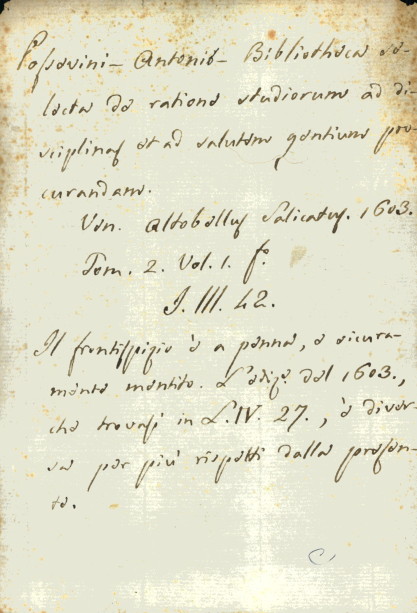 Possevini - Antonio - Bibliotheca se-
lecta de ratione studiorum ad di-
sciplinas et ad salutem gentium pro-
curandam.
Ven. Altobellus Salicatus. 1603.
Tom. 2. Vol. 1. fo.
J. III. 42.
Il frontispizio è a penna, e sicura-
mente mentito. L'ediz.e del 1603.,
che trovasi in L. IV. 27., è diver-
sa per più rispetti dalla presen-
te.